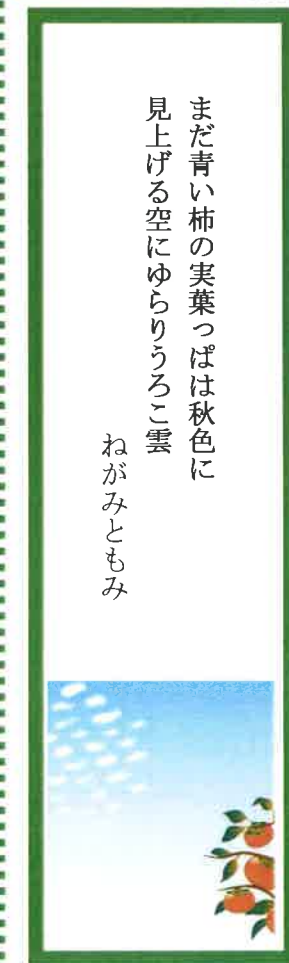 まだ青い柿の実葉っぱは秋色に
見上げる空にゆらりうろこ雲
ねがみともみ